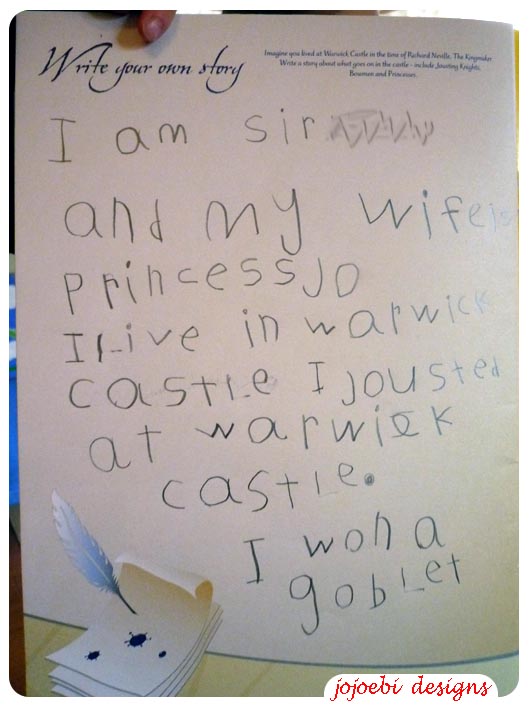 Write your own story
Imagine you lived at Warwick Castle in the time of Richard Neville, The Kingmaker
Write a story about what goes on in the castle - include Jousting Knights,
Bowmen and Princesses.
I am sir
and my wife is
princess Jo
I Live in warwick
castLe I Jousted
at warwick
castle.
I won a
gobLet
jojoebi designs